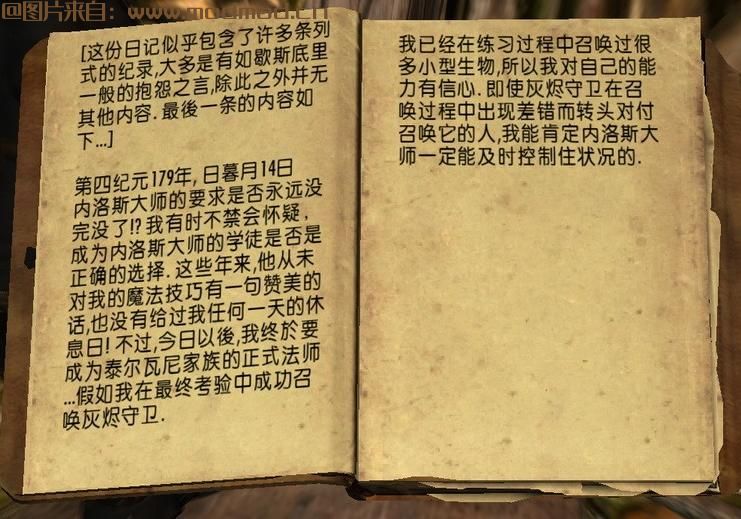 @图片来自：www.modmod.cn
[这份日记似乎包含了许多条列
式的纪录,大多是有如歇斯底里
一般的抱怨之言,除此之外并无
其他内容. 最後一条的内容如
下...]
第四纪元179年, 日暮月14日
内洛斯大师的要求是否永远没
完没了!? 我有时不禁会怀疑,
成为内洛斯大师的学徒是否是
正确的选择. 这些年来,他从未
对我的魔法技巧有一句赞美的
话,也没有给过我任何一天的休
息日! 不过,今日以後,我终於要
成为泰尔瓦尼家族的正式法师
...假如我在最终考验中成功召
唤灰烬守卫.
我已经在练习过程中召唤过很
多小型生物,所以我对自己的能
力有信心. 即使灰烬守卫在召
唤过程中出现差错而转头对付
召唤它的人,我能肯定内洛斯大
师一定能及时控制住状况的.